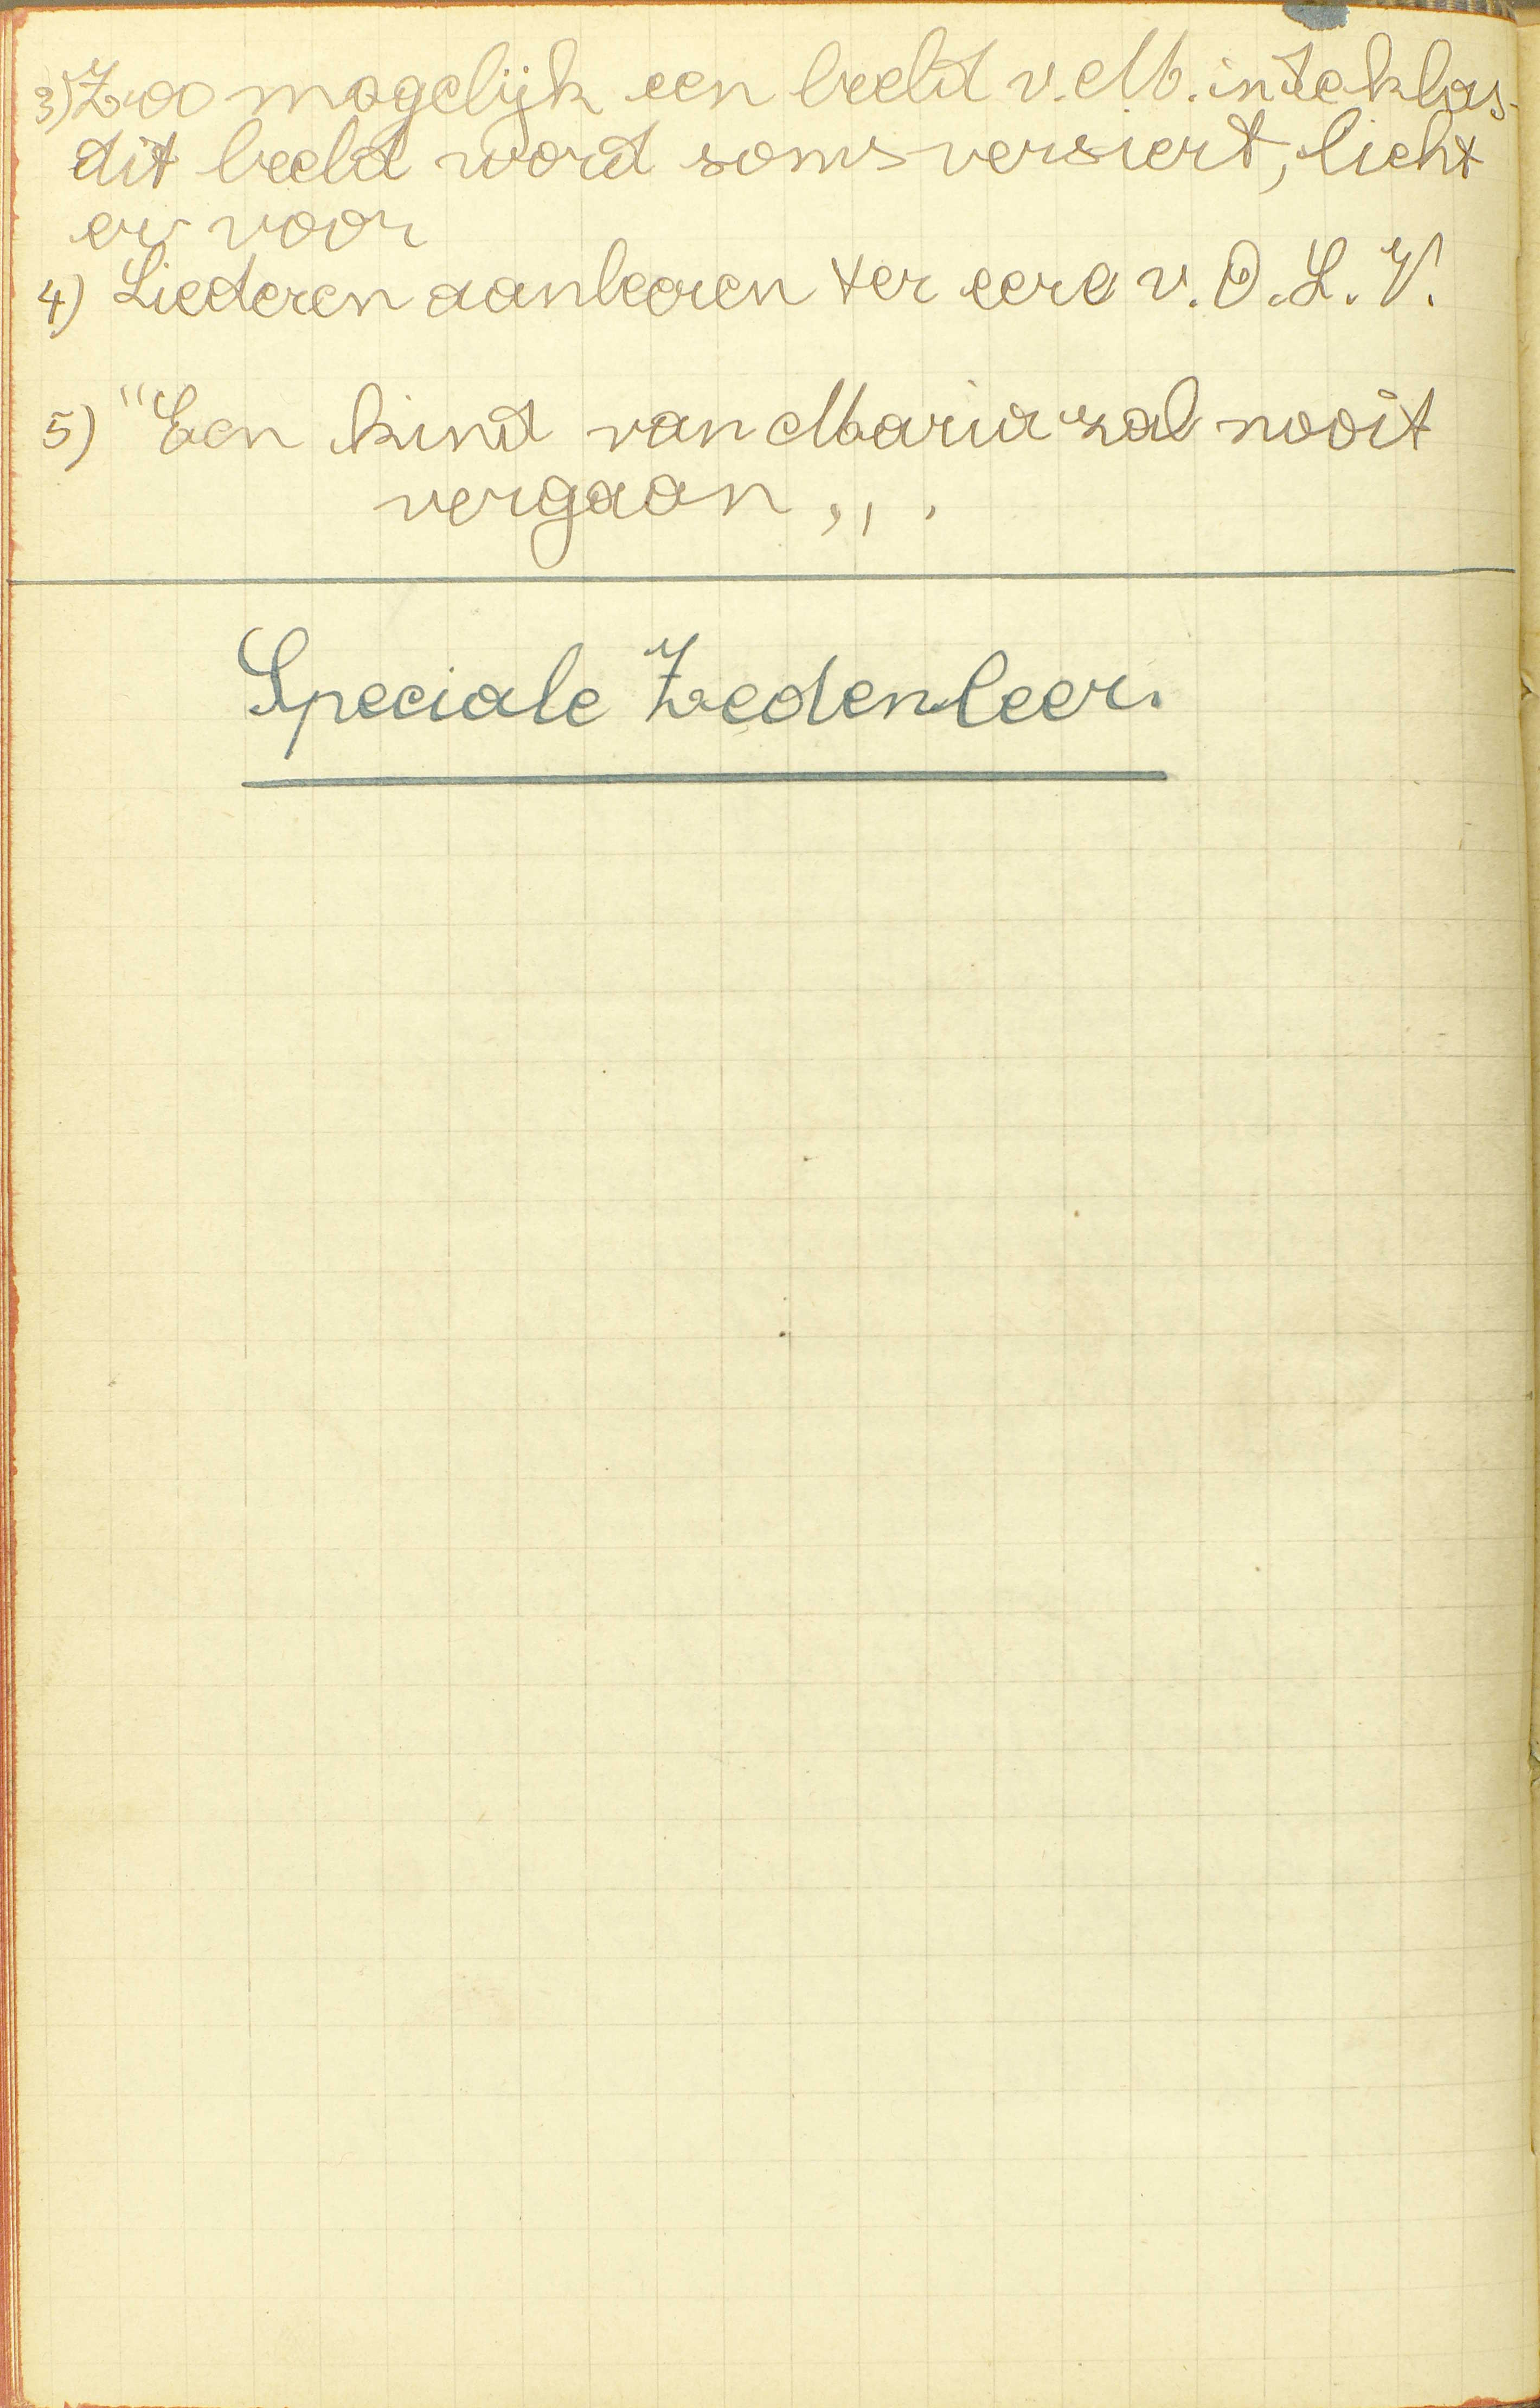 3) Zoo mogelijk een beeld v. M. in de klas -
dit beeld word soms versiert, licht
er voor
4) Liederen aanleeren ter eere v. O. L. V.
5) "Een kind van Maria zal nooit
vergaan ,, .
Speciale Zedenleer.